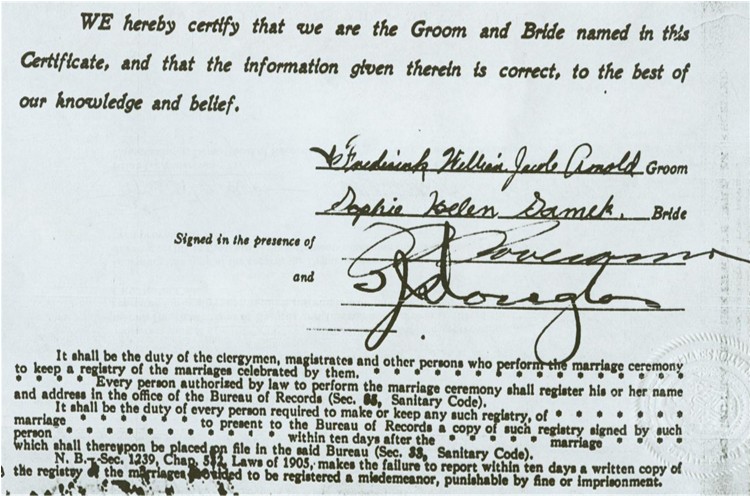 WE hereby certify that we are the Groom and Bride named in this
Certificate, and that the information given therein is correct, to the best of
our knowledge and belief.
Frederick William Jacob Arnold Groom
Sophie Helen Samek. Bride
Signed in the presence of
and S J Douglas
It shall be the duty of the clergymen, magistrates and other persons who perform the marriage ceremony
to keep a registry of the marriages celebrated by them. * * * * * * * * * * * * * * *
* * * * Every person authorized by law to perform the marriage ceremony shall register his or her name
and address in the office of the Bureau of Records (Sec. 35, Sanitary Code).
It shall be the duty of every person required to make or keep any such registry, of * * * * * *
marriage * * * * * * to present to the Bureau of Records a copy of such registry signed by such
person * * * * * * * * * * within ten days after the * * * * * marriage * * * *
which shall thereupon be placed on file in the said Bureau (Sec. 33, Sanitary Code).
N. B.—Sec. 1239, Chap. 532, Laws of 1905, makes the failure to report within ten days a written copy of
the registry of the marriages provided to be registered a misdemeanor, punishable by fine or imprisonment.